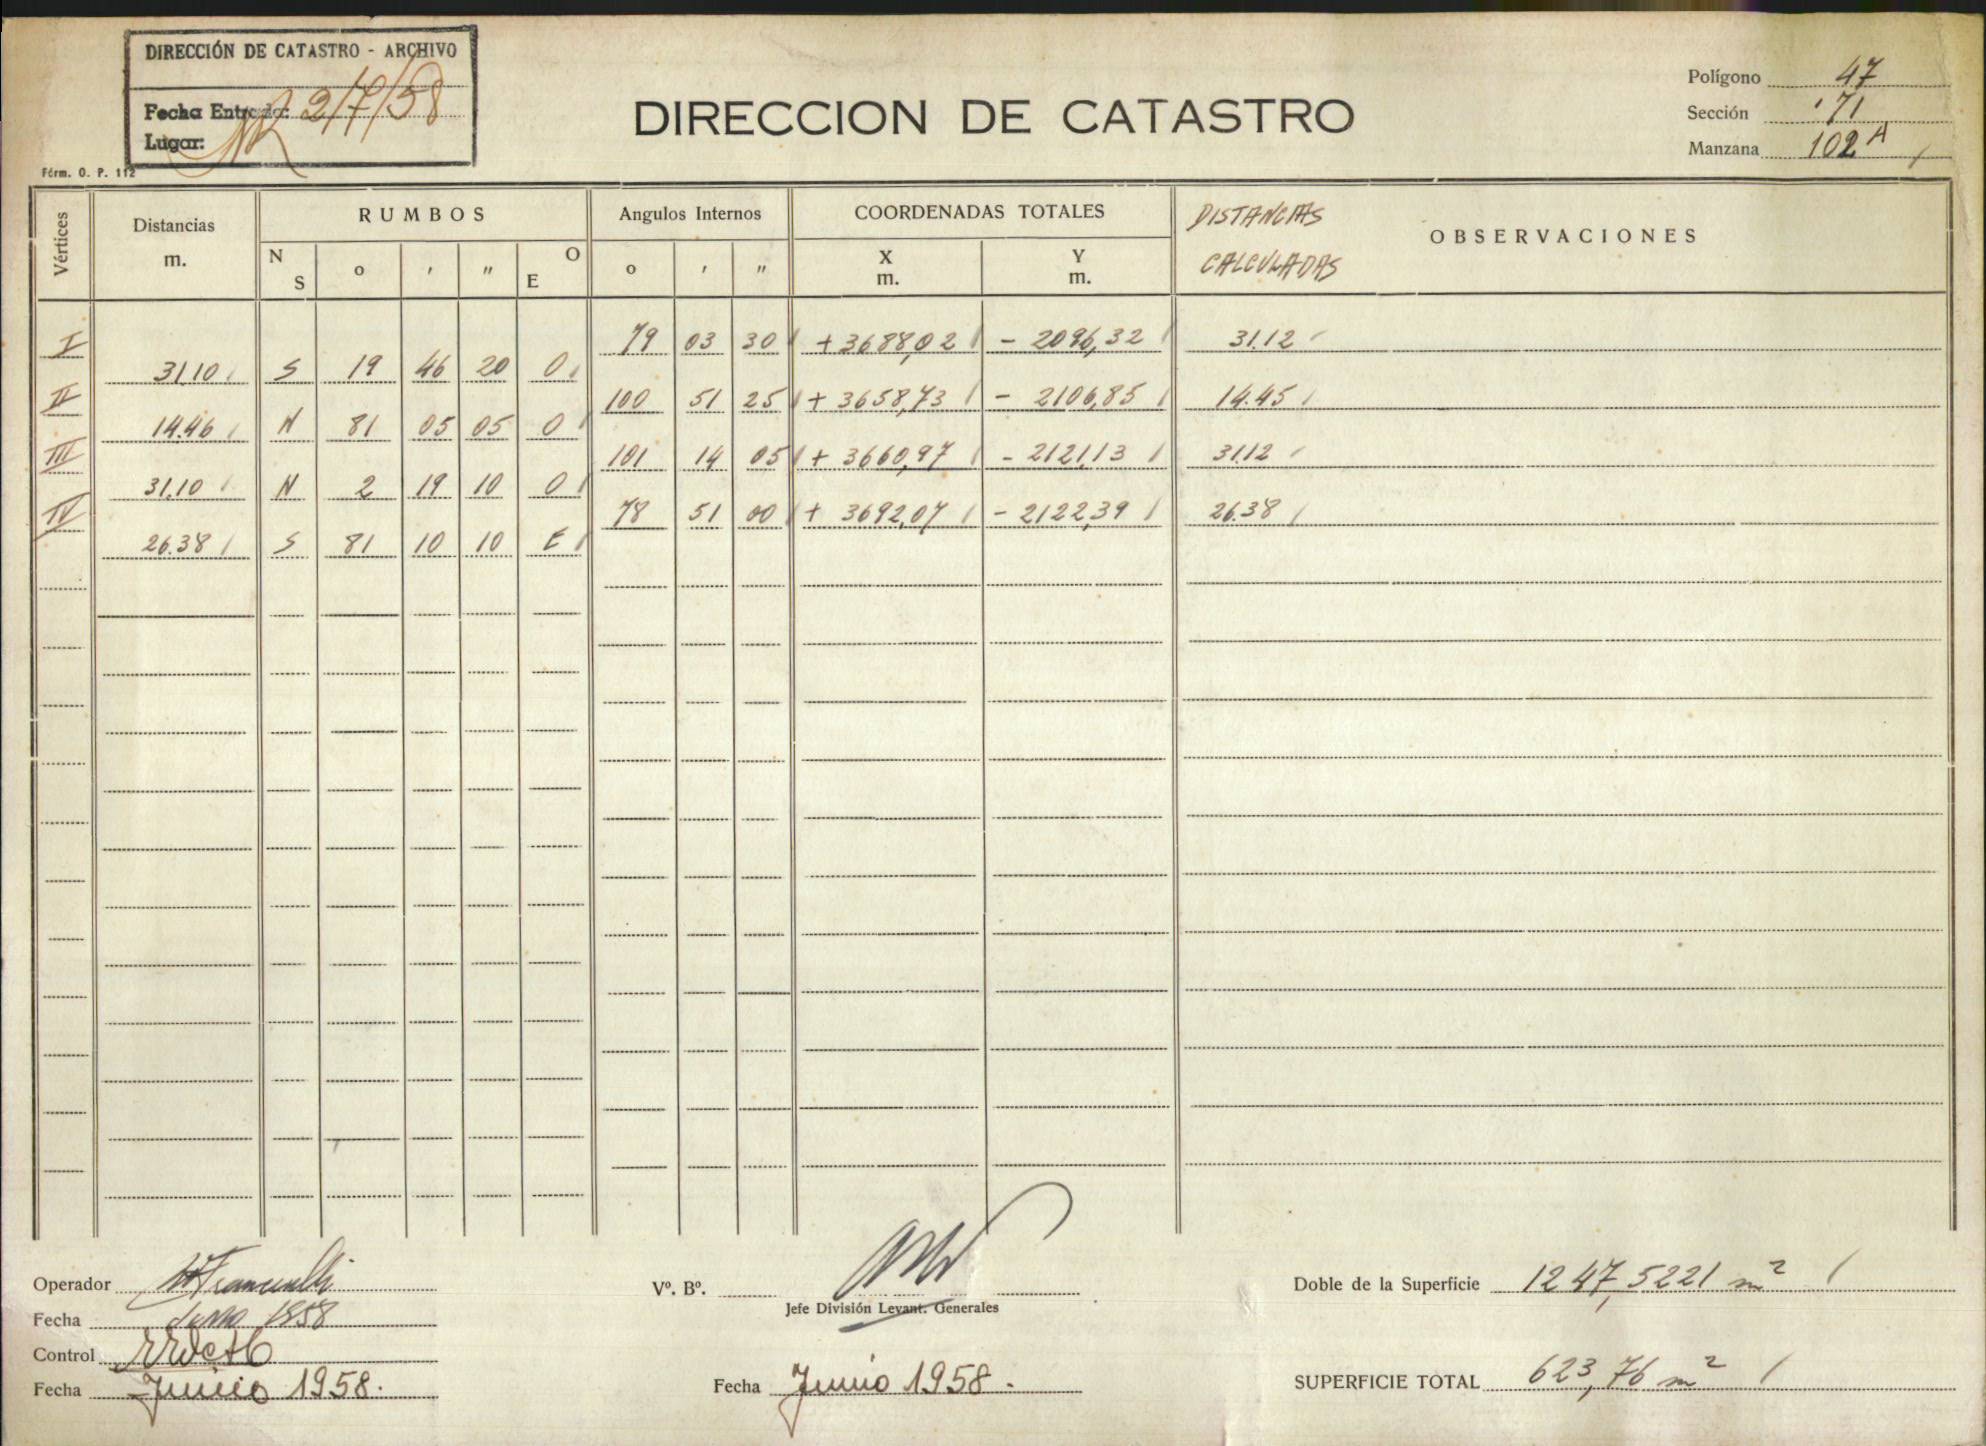 DIRECCIÓN DE CATASTRO - ARCHIVO
Fecha Entrada: 2/7/58
Lugar:
Fórm. O. P. 112
DIRECCION DE CATASTRO
Polígono 47
Sección 71
Manzana 102 A
Vértices Distancias m. RUMBOS Angulos Internos COORDENADAS TOTALES DISTANCIAS CALCULADAS OBSERVACIONES
N S o ' " O E o ' " X m. Y m.
I 79 03 30 + 3688,02 - 2096,32 31.12
31.10 S 19 46 20 O
II 100 51 25 + 3658,73 - 2106,85 14.45
14.46 N 81 05 05 O
III 101 14 05 + 3660,97 - 2121,13 31.12
31.10 N 2 19 10 O
IV 78 51 00 + 3692,07 - 2122,39 26.38
26.38 S 81 10 10 E
Operador
Fecha Junio 1958
Control
Fecha Junio 1958.
Vº. Bº.
Jefe División Levant. Generales
Fecha Junio 1958.
Doble de la Superficie 1247,5221 m²
SUPERFICIE TOTAL 623,76 m²